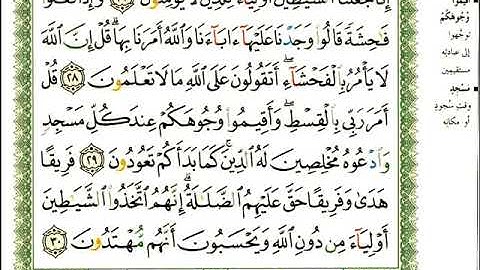 إِنَّا جَعَلْنَا ٱلشَّيَٰطِينَ أَوْلِيَآءَ لِلَّذِينَ لَا يُؤْمِنُونَ ٢٧ وَإِذَا فَعَلُوا۟
فَٰحِشَةً قَالُوا۟ وَجَدْنَا عَلَيْهَآ ءَابَآءَنَا وَٱللَّهُ أَمَرَنَا بِهَا ۗ قُلْ إِنَّ ٱللَّهَ
لَا يَأْمُرُ بِٱلْفَحْشَآءِ ۖ أَتَقُولُونَ عَلَى ٱللَّهِ مَا لَا تَعْلَمُونَ ٢٨ قُلْ
أَمَرَ رَبِّى بِٱلْقِسْطِ ۖ وَأَقِيمُوا۟ وُجُوهَكُمْ عِندَ كُلِّ مَسْجِدٍ
وَٱدْعُوهُ مُخْلِصِينَ لَهُ ٱلدِّينَ ۚ كَمَا بَدَأَكُمْ تَعُودُونَ ٢٩ فَرِيقًا
هَدَىٰ وَفَرِيقًا حَقَّ عَلَيْهِمُ ٱلضَّلَٰلَةُ ۗ إِنَّهُمُ ٱتَّخَذُوا۟ ٱلشَّيَٰطِينَ
أَوْلِيَآءَ مِن دُونِ ٱللَّهِ وَيَحْسَبُونَ أَنَّهُم مُّهْتَدُونَ ٣٠
أقيموا
وُجُوهَكُمْ
توجّهوا
إلى عبادته
مستقيمين
مَسْجِدٍ
وقتِ سُجودٍ
أو مكانه